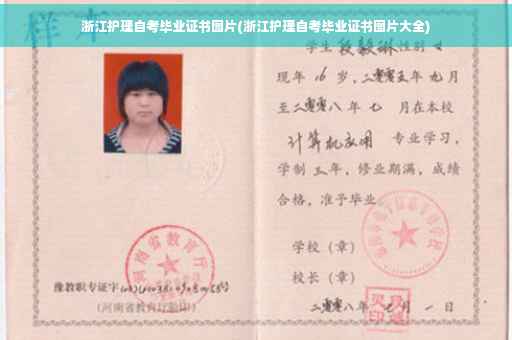 浙江护理自考毕业证书图片(浙江护理自考毕业证书图片大全)
样本
学生段毅琳性别女
现年16岁,二零零五年九月
至二零零八年七月在本校
计算机应用 专业学习,
学制三年,修业期满,成绩
合格,准予毕业
学校(章)
校长(章)
二零零八年 月 一日
河南省教育厅
豫教职专证字
(河南省教育厅验印)